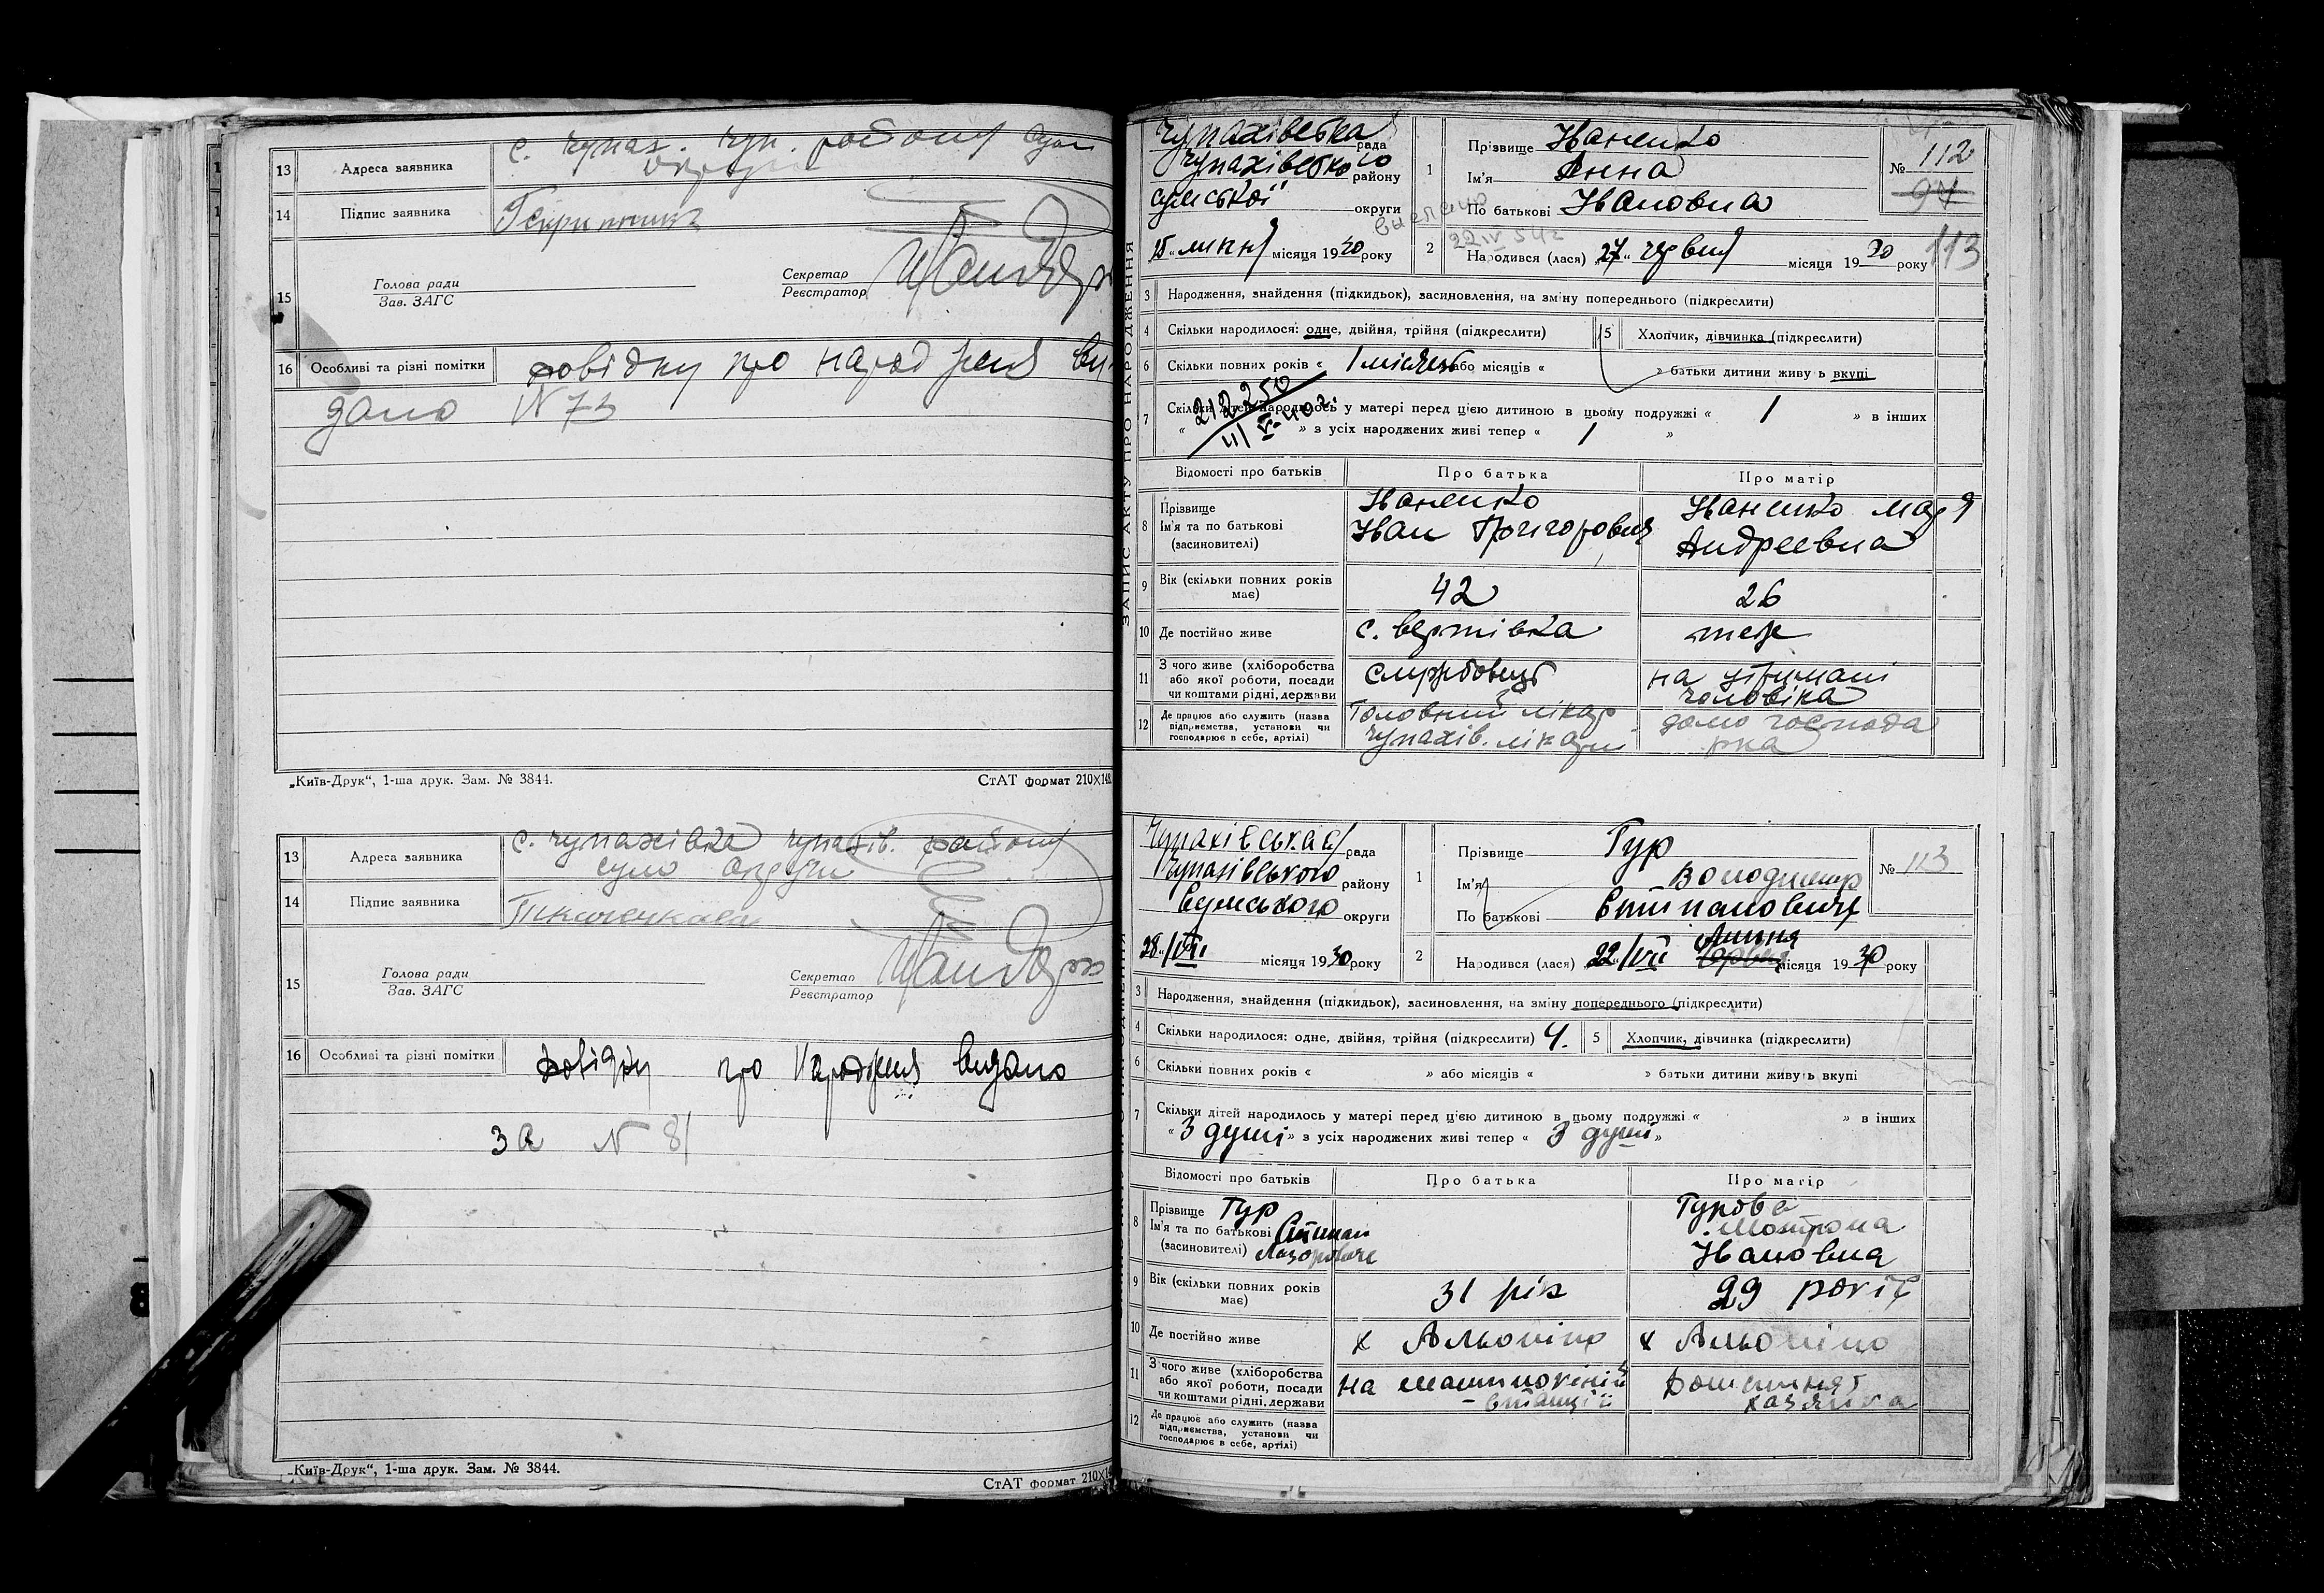 13 Адреса заявника с. Чупах. Чуп. району Сум
округи
14 Підпис заявника
15 Голова ради
Зав. ЗАГС
Секретар
Реєстратор
16 Особливі та різні помітки довідку про народженя ви-
дано N 73
„Київ-Друк“, 1-ша друк. Зам. № 3844. СтАТ формат 210×148
13 Адреса заявника с. Чупахівка Чупахів. району
Сумс округи
14 Підпис заявника
15 Голова ради
Зав. ЗАГС
Секретар
Реєстратор
16 Особливі та різні помітки довідку про народженя видано
за N 81
„Київ-Друк“, 1-ша друк. Зам. № 3844.
СтАТ формат 210×14
ЗАПИС АКТУ ПРО НАРОДЖЕННЯ
Чупахівська рада
Чупахівського району
Сумської округи
15 „ липня місяця 1930 року
1 Прізвище Іваненко
Ім'я Анна
По батькові Івановна
№ 112
94
113
видано
22 IV 54 г
2 Народився (лася) „27“ червня місяця 1930 року
3 Народження, знайдення (підкидьок), засиновлення, на зміну попереднього (підкреслити)
4 Скільки народилося: одне, двійня, трійня (підкреслити) 5 Хлопчик, дівчинка (підкреслити)
6 Скільки повних років « 1 місяць або місяців « » батьки дитини живуть вкупі
7 Скільки дітей народилось у матері перед цією дитиною в цьому подружжі « 1 » в інших
« » з усіх народжених живі тепер « 1 »
212250
11/V-40 г.
Відомості про батьків Про батька Про матір
8 Прізвище
Ім'я та по батькові
(засиновителі)
Іваненко
Іван Григорович
Іваненко Марія
Андреевна
9 Вік (скільки повних років має) 42 26
10 Де постійно живе с. Вертівка теж
11 З чого живе (хліборобства
або якої роботи, посади
чи коштами рідні, держави
службовець
на утримані
чоловіка
12 Де працює або служить (назва
підприємства, установи чи
господарює в себе, артілі)
Головний лікар
Чупахів. лікарні
домо господа
рка
Чупахівська рада
Чупахівського району
Сумського округи
28 „/VII місяця 1930 року
1 Прізвище Тур
Ім'я Володимир
По батькові Степанович
№ 113
2 Народився (лася) „22“/VII Червня Липня місяця 1930 року
3 Народження, знайдення (підкидьок), засиновлення, на зміну попереднього (підкреслити)
4 Скільки народилося: одне, двійня, трійня (підкреслити) 4. 5 Хлопчик, дівчинка (підкреслити)
6 Скільки повних років « » або місяців « » батьки дитини живуть вкупі
7 Скільки дітей народилось у матері перед цією дитиною в цьому подружжі « » в інших
« 3 душі » з усіх народжених живі тепер « 3 душі »
Відомості про батьків Про батька Про матір
8 Прізвище Тур
Ім'я та по батькові Степан
(засиновителі) Лазорович
Турова
Мотрона
Івановна
9 Вік (скільки повних років має) 31 рік 29 років
10 Де постійно живе х Альошіно х Альошіно
11 З чого живе (хліборобства
або якої роботи, посади
чи коштами рідні, держави
на машиновій
станції
Домашнят
хазяйка
12 Де працює або служить (назва
підприємства, установи чи
господарює в себе, артілі)